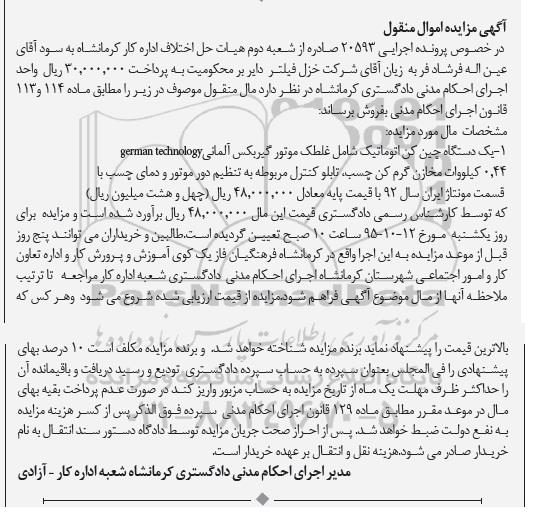 آگهی مزایده اموال منقول
در خصوص پرونده اجرایی ۲۰۵۹۳ صادره از شعبه دوم هیات حل اختلاف اداره کار کرمانشاه به سود آقای
عین اله فرشاد فر به زیان آقای شرکت خزل فیلتر دایر بر محکومیت به پرداخت ۳۰,۰۰۰,۰۰۰ ریال واحد
اجرای احکام مدنی دادگستری کرمانشاه در نظر دارد مال منقول موصوف در زیر را مطابق ماده ۱۱۴ و۱۱۳
قانون اجرای احکام مدنی بفروش برساند:
مشخصات مال مورد مزایده:
۱-یک دستگاه چین کن اتوماتیک شامل غلطک موتور گیربکس آلمانیgerman technology
۰,۴۴ کیلووات مخازن گرم کن چسب، تابلو کنترل مربوطه به تنظیم دور موتور و دمای چسب با
قسمت مونتاژ ایران سال ۹۲ با قیمت پایه معادل ۴۸,۰۰۰,۰۰۰ ریال (چهل و هشت میلیون ریال)
که توسط کارشناس رسمی دادگستری قیمت این مال ۴۸,۰۰۰,۰۰۰ ریال برآورد شده است و مزایده برای
روز یکشنبه مورخ ۱۲-۱۰-۹۵ ساعت ۱۰ صبح تعیین گردیده است.طالبین و خریداران می توانند پنج روز
قبل از موعد مزایده به این اجرا واقع در کرمانشاه فرهنگیان فاز یک کوی آموزش و پرورش کار و اداره تعاون
کار و امور اجتماعی شهرستان کرمانشاه اجرای احکام مدنی دادگستری شعبه اداره کار مراجعه تا ترتیب
ملاحظه آنها از مال موضوع آگهی فراهم شود.مزایده از قیمت ارزیابی شده شروع می شود وهر کس که
بالاترین قیمت را پیشنهاد نماید برنده مزایده شناخته خواهد شد. و برنده مزایده مکلف است ۱۰ درصد بهای
پیشنهادی را فی المجلس بعنوان سپرده به حساب سپرده دادگستری تودیع و رسید دریافت و باقیمانده آن
را حداکثر ظرف مهلت یک ماه از تاریخ مزایده به حساب مزبور واریز کند در صورت عدم پرداخت بقیه بهای
مال در موعد مقرر مطابق ماده ۱۲۹ قانون اجرای احکام مدنی سپرده فوق الذکر پس از کسر هزینه مزایده
به نفع دولت ضبط خواهد شد. پس از احراز صحت جریان مزایده توسط دادگاه دستور سند انتقال به نام
خریدار صادر می شود.هزینه نقل و انتقال بر عهده خریدار است.
مدیر اجرای احکام مدنی دادگستری کرمانشاه شعبه اداره کار - آزادی